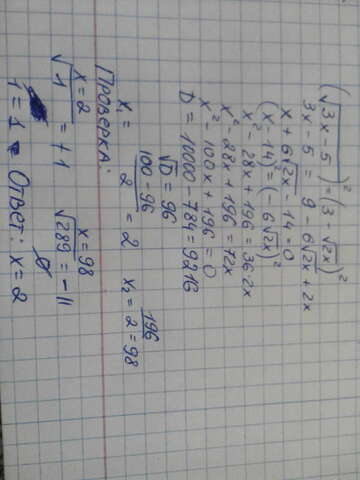 (√3x-5)² = (3-√2x)²
3x-5 = 9-6√2x+2x
x+6√2x-14=0
(x-14)²=(-6√2x)²
x²-28x+196=36·2x
x²-28x+196=72x
x²-100x+196=0
D=10000-784=9216
√D=96
x₁= 100-96/2 = 2 x₂= 196/2 = 98
Проверка:
x=2 x=98
√1 = +1 √289 = -11
1=1 Ответ: x=2